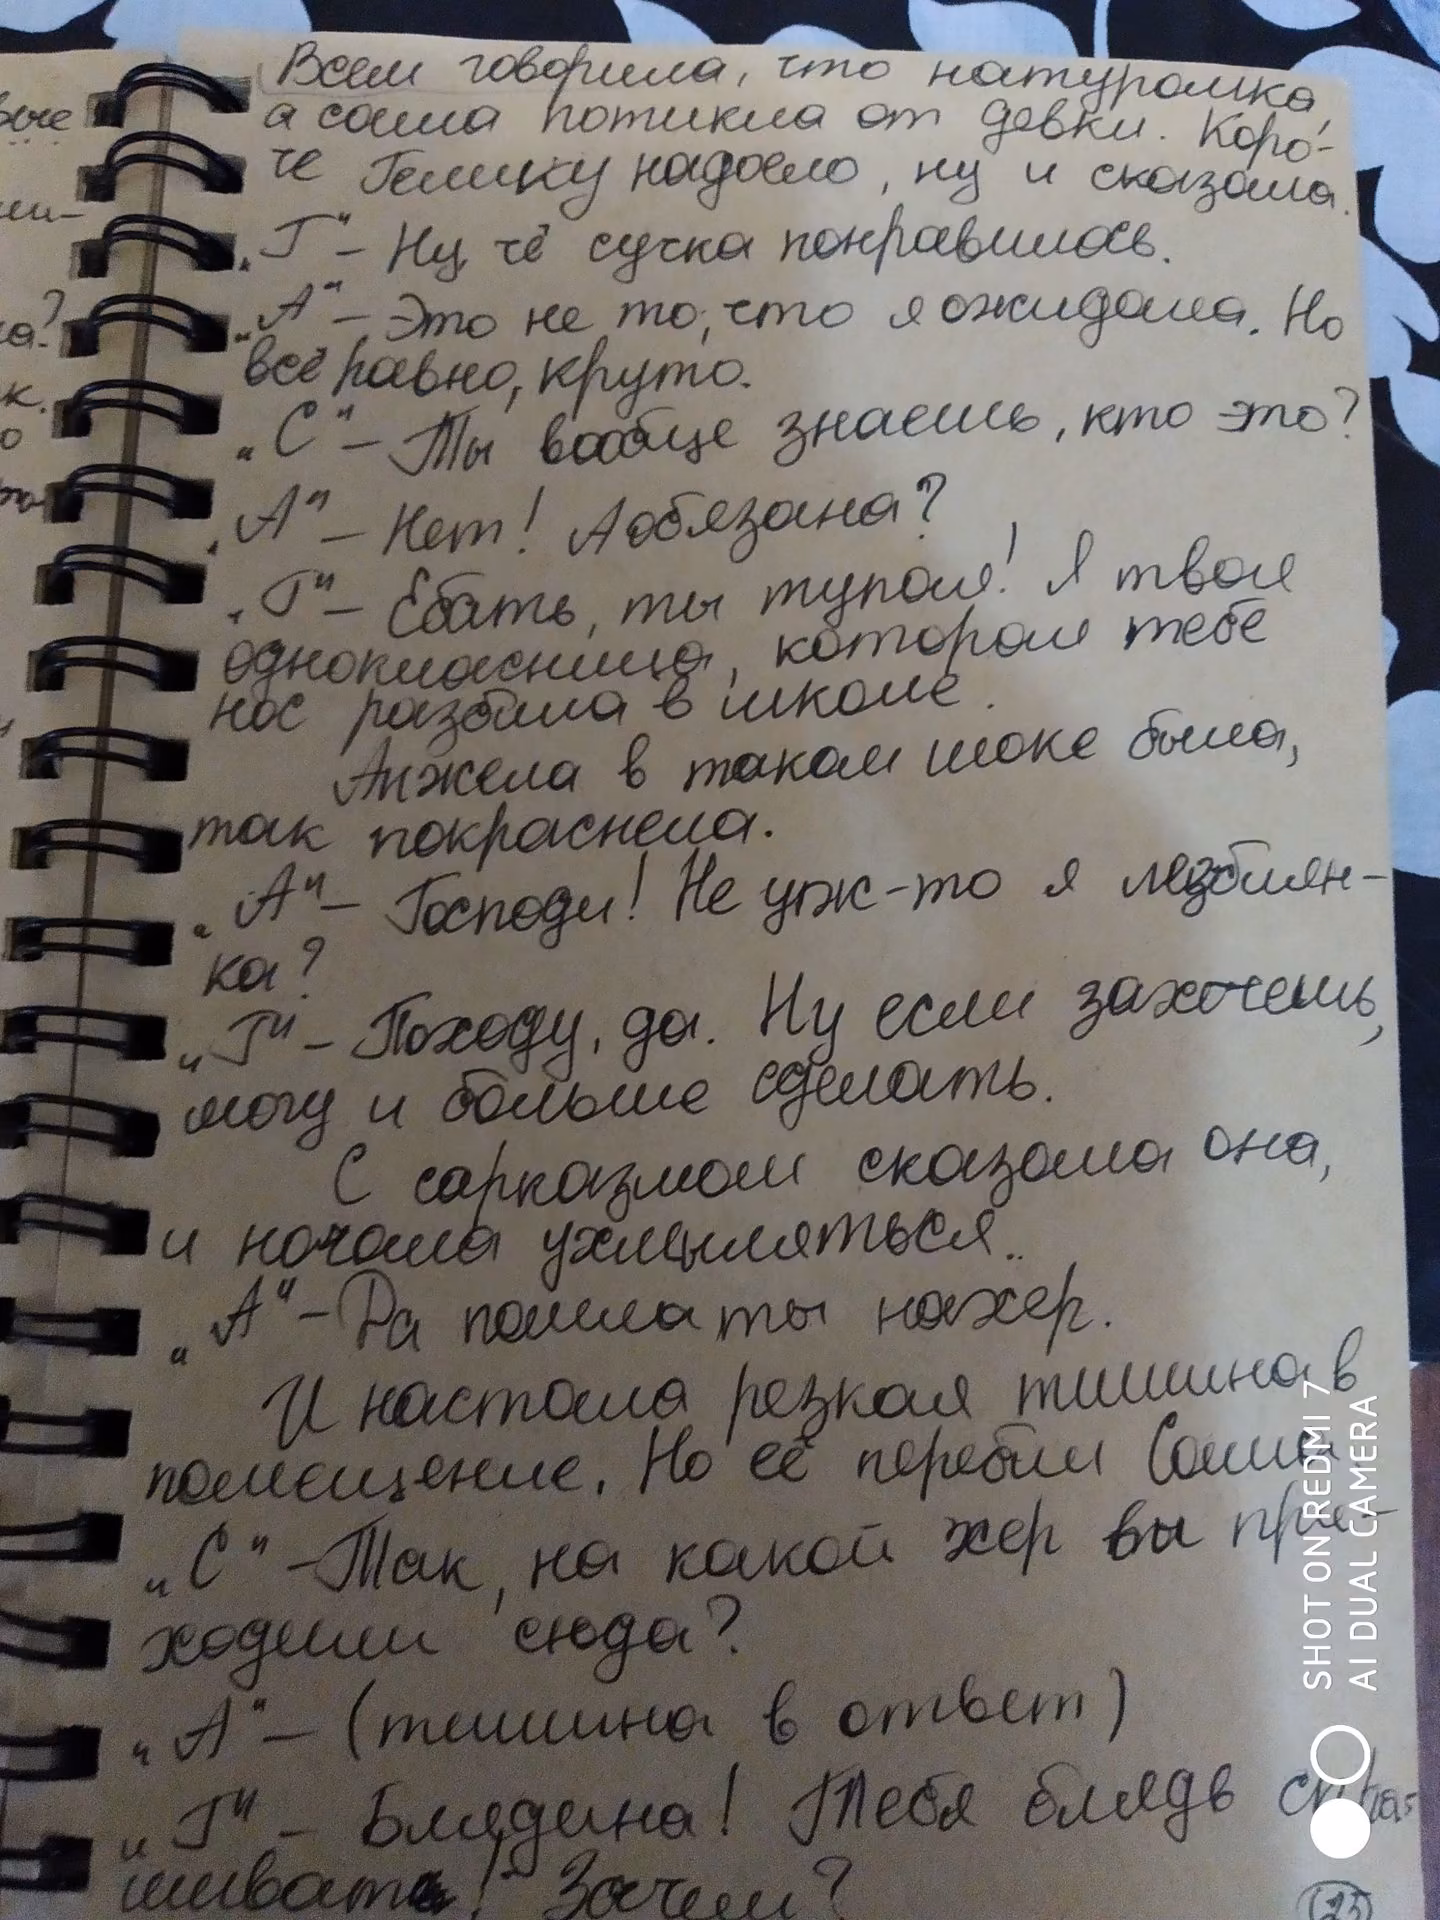 Всем говорила, что натуралка,
а сама потикла от девки. Коро-
че Гелику надоело, ну и сказала.
„Г" – Ну, чё сучка понравилась.
„А" – Это не то, что я ожидала. Но
всё равно, круто.
„С" – Ты вообще знаешь, кто это?
„А" – Нет! А обязана?
„Г" – Ебать, ты тупая! Я твоя
однокласница, которая тебе
нос разбила в школе.
Анжела в таком шоке была,
так покраснела.
„А" – Господи! Не уж-то я лезбиян-
ка?
„Г" – Походу, да. Ну если захочешь,
могу и больше сделать.
С сарказмом сказала она,
и начала ухмыляться..
„А" – Да пошла ты нахер.
И настала резкая тишина в
помещение. Но её перебил Саша
„С" – Так, на какой хер вы при-
ходили сюда?
„А" – (тишина в ответ)
„Г" – Блядина! Тебя блядь спра-
шивать! Зачем?
25
вые
ми-
ла?
к.
о
SHOT ON REDMI 7
AI DUAL CAMERA